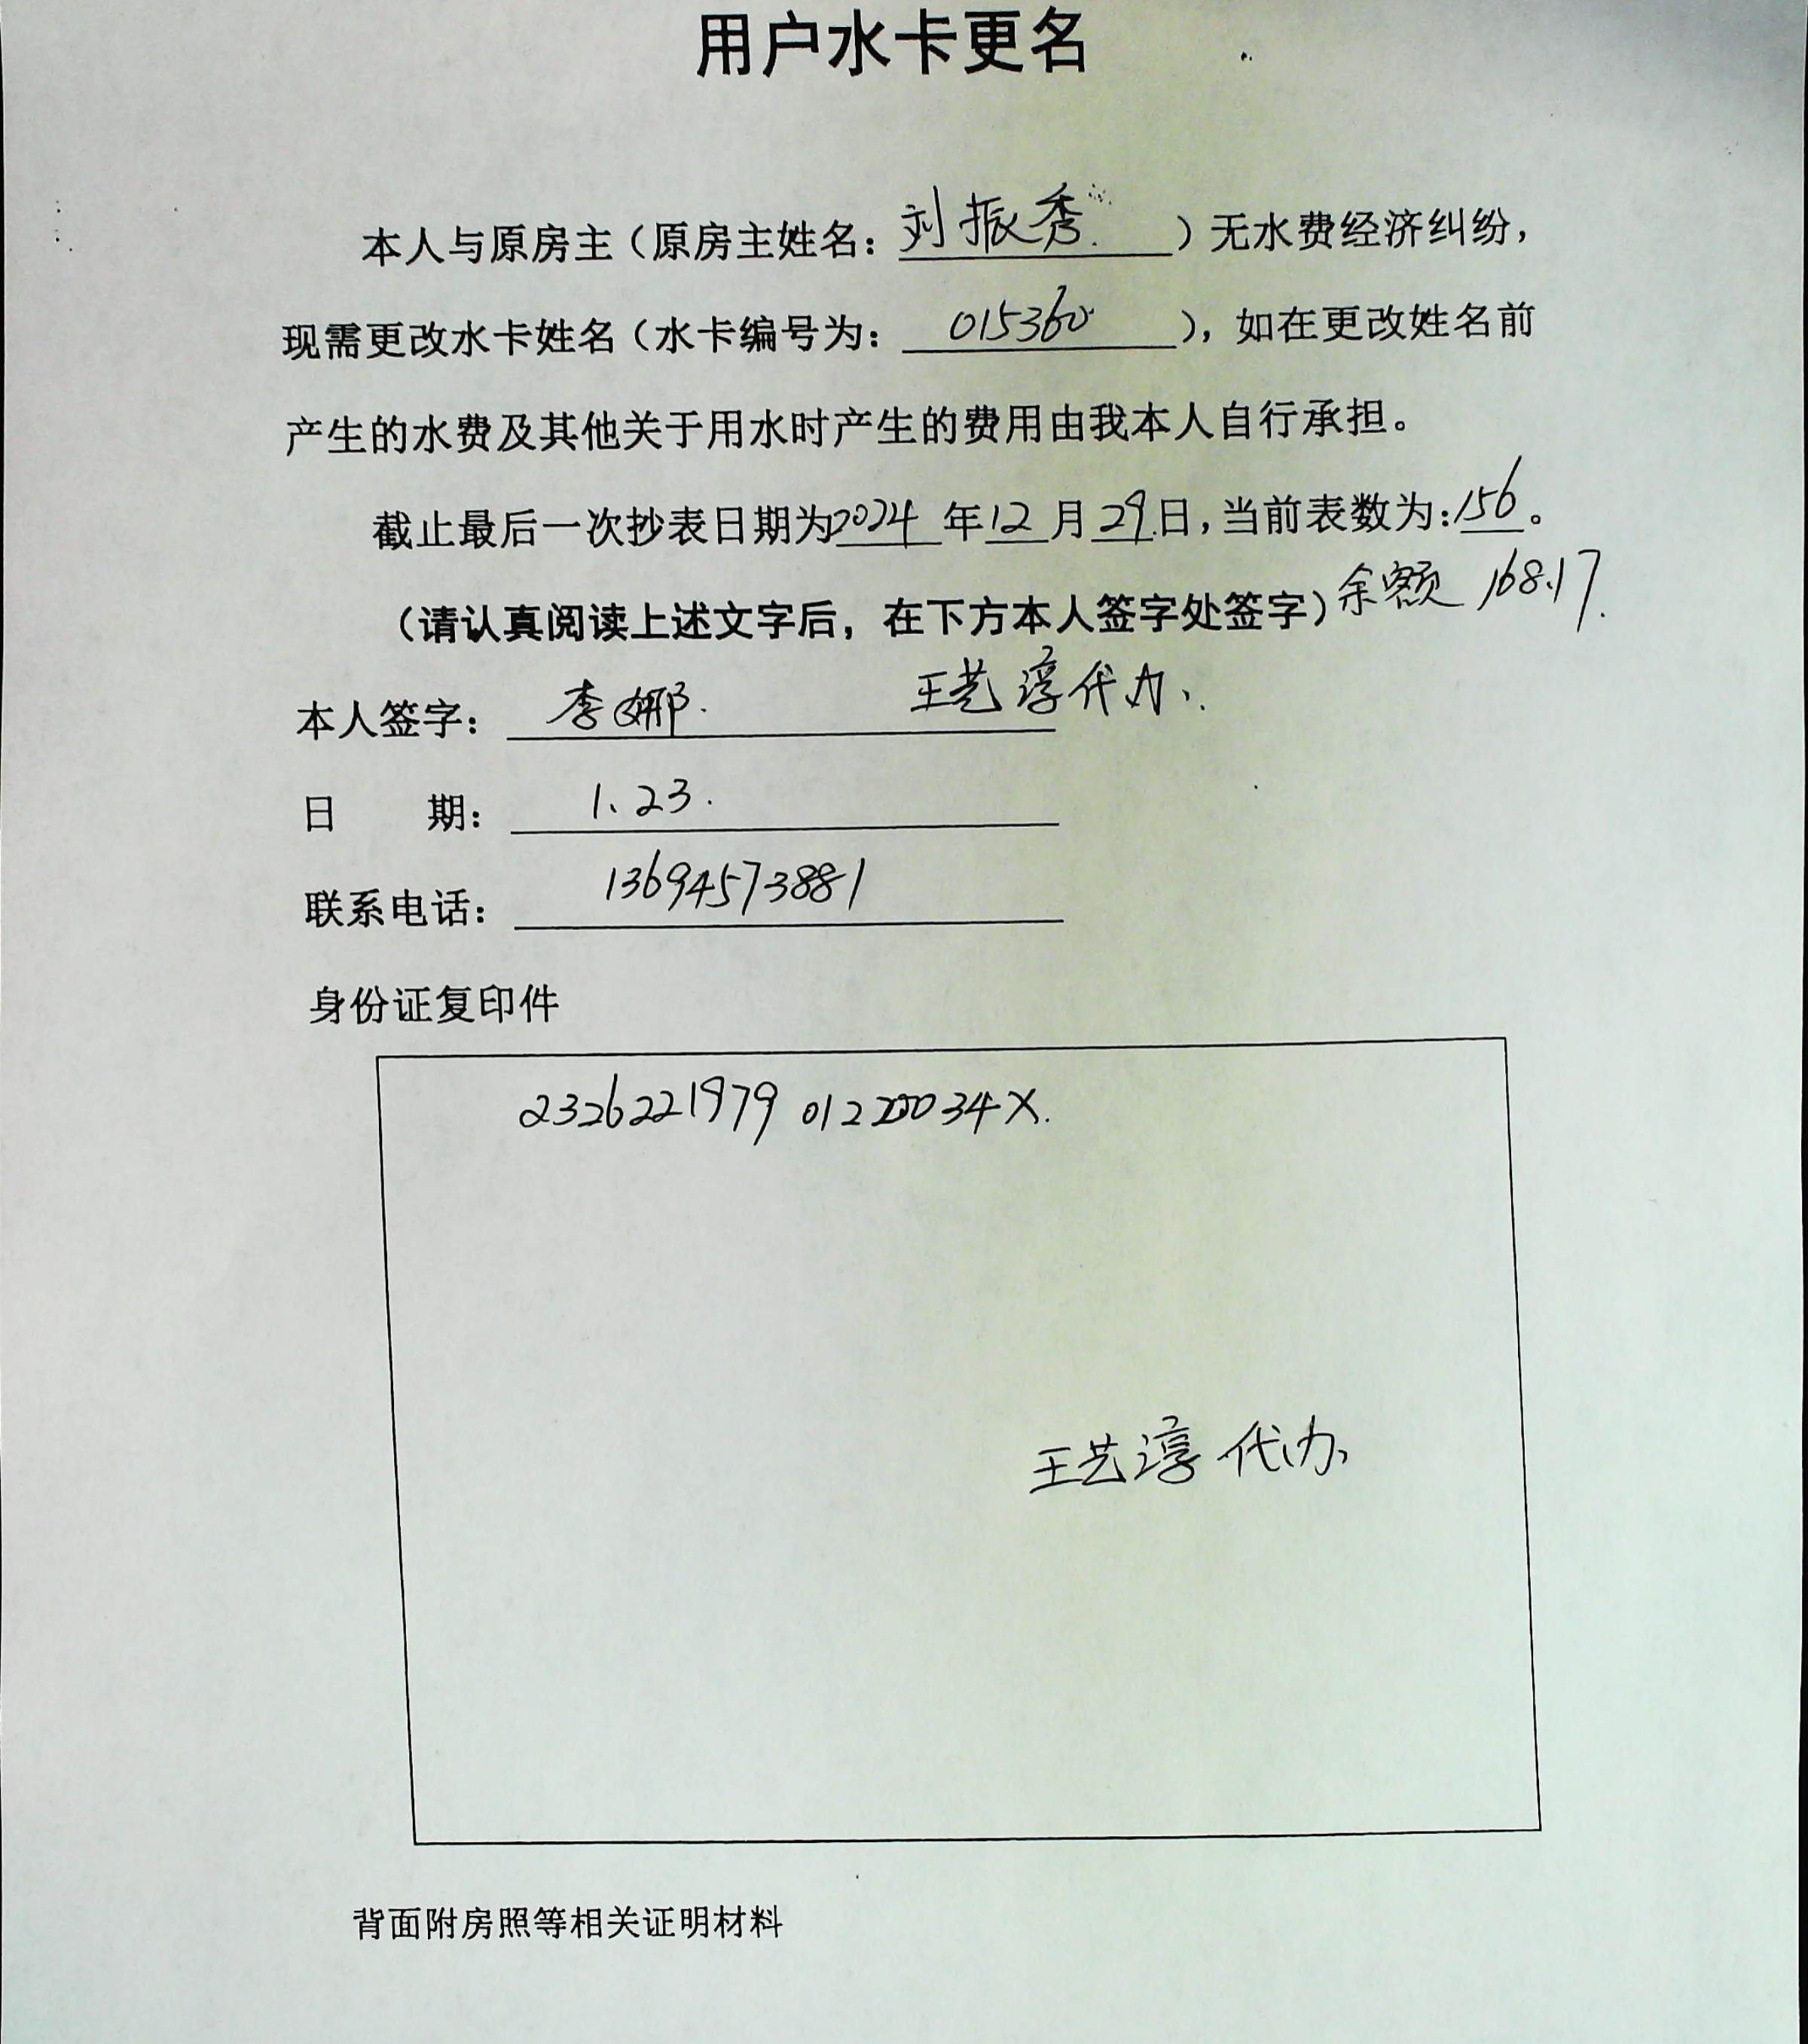 用户水卡更名
本人与原房主（原房主姓名：刘振秀）无水费经济纠纷，
现需更改水卡姓名（水卡编号为：015360），如在更改姓名前
产生的水费及其他关于用水时产生的费用由我本人自行承担。
截止最后一次抄表日期为2024年12月29日，当前表数为：156。
（请认真阅读上述文字后，在下方本人签字处签字）余额 168.17.
本人签字： 李娜. 王艺淳代办、
日 期： 1、23.
联系电话： 13694573881
身份证复印件
王艺淳代办、
背面附房照等相关证明材料